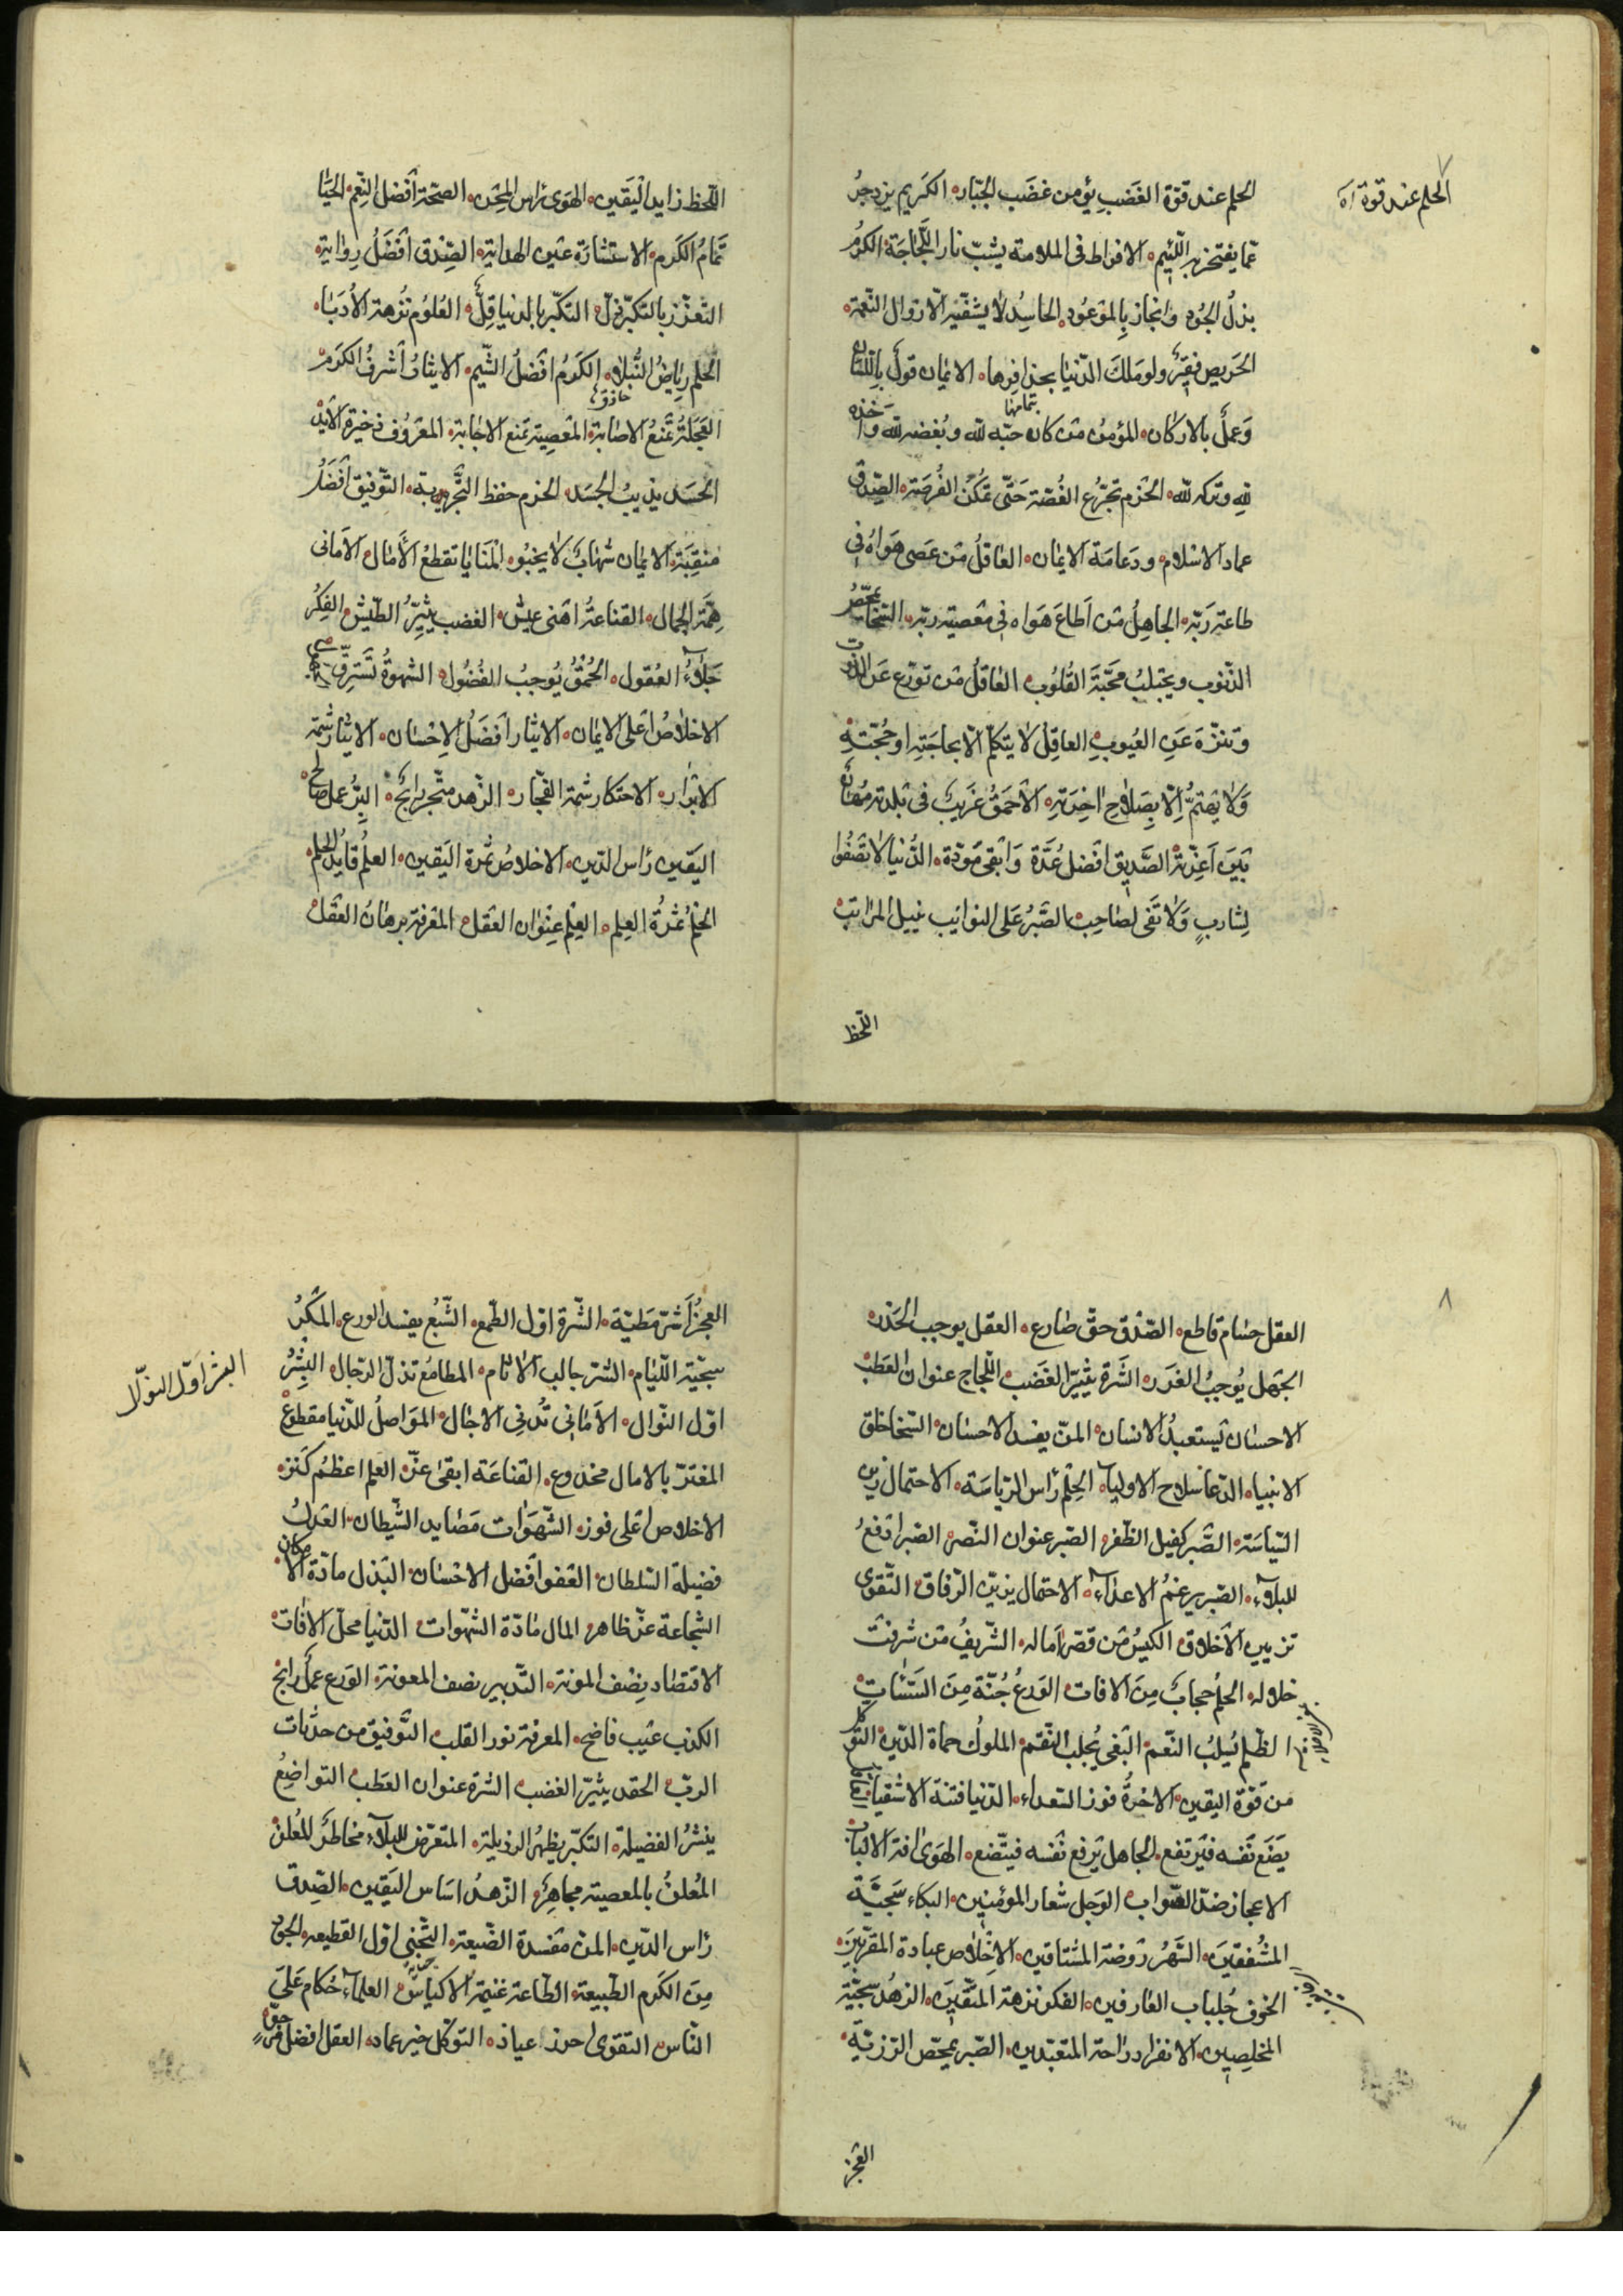 ٧
الحلم عند قوة آه
الحلم عند قوّة الغَضَبِ يؤمن غضَب الجبّار، الكريم يزدجرُ
عمّا يفتخر به اللّئيم، الافراط فى الملامة يشبّ نار اللّجَاجَة، الكرمُ
بذلُ الجُود وانجاز بِالموعُود، الحاسِدُ لا يشفّيه الّا زوال النّعمة،
الحَريص فقيرٌ ولو مَلكَ الدّنيا بحذافيرها، الايمان قولٌ باللّسان
بتمامها
وَعملٌ بالاركان، المؤمنُ مَن كان حبّه لله وبُغضه لله واخذه
لله وتركه لله، الحَزم تجرّع الغُصّة حَتّى تمكن الفُرصَة، الصّدق
عماد الاسلام ودَعامَة الايمان، العاقلُ مَن عَصى هَواهُ فى
طاعة رَبّه، الجاهِلُ مَن اَطاعَ هَواه فى مَعصية ربّه، السّخا يمحّصُ
الذّنوب ويجتلبُ محَبّةَ القُلُوب، العاقلُ مَن تورّع عَن الذّنوب
وتنزّهَ عَنِ العُيوبِ، العاقِلُ لا يتكلّم الّا بحاجَتِه او حُجّتِهِ
وَلا يَهتمُّ اِلّا بِصَلاحِ اٰخِرَتِهِ، الاحمَقُ غَريبٌ فى بَلدته مُهانٌ
بَيَن اَعِزّتهِ، الصَّديق افضل عُدَّة وَابقى مَودّة، الدُّنيا لا تَصفُوا
لِشَاربٍ وَلا تَفى لصاحِب، الصَّبرُ عَلى النوائب ينيل المراتب
اللّحظ
اللّحظ زايد اليَقين، الهَوى رَاس المِحَن، الصحّة اَفضل النِّعم، الحَيا
تمامُ الكَرم، الاستشارَة عَين الهداية، الصِّدق اَفضَلُ رِواية،
التّعزّز بالتكبّر ذلّ، التكبّر بالدنيا قِلٌّ، العُلوُم نُزهة الأُدَبا،
الحِلم ريَاضُ النُّبلاء، الكَرمُ افَضلُ الشّيم، الايثارُ اَشرفُ الكرَم
العَجَلةُ تمنَعُ الاصابَة، المعَصِية تَمنع الاجابَة، المَعرُوف ذخيرة الابد
الحَسَد يذيبُ الجسَد، الحزم حفظ التّجربة، التّوفيق اَفضَلُ
مَنقِبَة، الايمان شهابٌ لا يخبُو، المَنَايا تقطعُ الآمال، الاَمانى
هِمّة الجهال، القناعةُ اهنى عيش، الغضب يثيرُ الطّيش، الفِكرُ
جَلاءُ العُقول، الحُمقُ يُوجبُ الفُضُول، الشهوةُ تَسَترِقّ
الاخلاصُ اَعلى الايمان، الايثار اَفضَلُ الاِحسَان، الايثار شيمة
الابرار، الاحتكار شيمة الفجّار، الزّهد متّجر رابحٌ، البِرُّ عمل صالح
اليَقين رَاس الدّين، الاخلاصُ ثمرة اليَقين، العلمُ قايدُ الحلم،
الحلمُ ثمرةُ العِلم، العِلمُ عِنوَان العَقل، المَعرفة برهانُ العَقل
٨
العقل حسَام قاطع، الصّدق حقّ صادع، العقل يوجب الحَذر،
الجَهل يُوجبُ الغَدَر، الشَّره يثيرُ الغَضَب، اللّجاج عنوانُ العَطَب
الاحسان يَستعبدُ الانسان، المَنّ يفسد الاحسان، السّخا خلق
الانبيا، الدّعا سلاح الاوليا، الحِلم رَاس الرّياسَة، الاحتمال زين
السّياسَة، الصَّبر كفيل الظّفر، الصّبر عنوان النّصر، الصّبر ادفعُ
للبلاء، الصّبر يرغمُ الاعداء، الاحتمال يزيّن الرّفاق، التّقوى
تزيين الاخلاق، الكيّسُ مَن قصّر آماله، الشّريفُ مَن شرفت
خلاله، الحلمُ حجابٌ مِنَ الافات، الوَرعُ جُنّة مِنَ السَّيّئاتِ
الظّلم يُسلبُ النّعم، البَغى يُجلب النّقم، الملوكُ حماة الدّين، التّوكّل
من قوّة اليقين، الاخرةُ فوز السّعداء، الدّنيا فتنة الاشقيا، العاقل
يَضَع نَفسه فيَرتفع، الجاهل يَرفع نَفسه فيتّضع، الهَوى افة الالباب
الاعجاز ضدّ الصّواب، الوَجل شعار المؤمنين، البكاء سَجيّة
المُشفقينَ، السَّهَرُ رَوضة المشتاقين، الاخلاص عبادة المقرّبين،
الخوف جُلباب العارفين، الفكر نزهة المتّقين، الزهدُ سجيّة
المخلصين، الانفراد راحة المتعبّدين، الصّبر يمحّص الرّزيّة،
العجز
العَجزُ اَشرّ مَطيّة، الشّره اوّل الطّمع، الشّبعُ يفسد الورع، المَكرُ
سجيّة اللّئام، الشّر جالب الاثام، المطامعُ تذلّ الرّجال، البِشرُ
البشر اوّل النوال
اوّل النّوال، الاَمانى تُدنى الاجال، المَواصلُ للدّنيا مقطوعٌ
المغترّ بالامال مخدوع، القناعَة ابقى عزّ، العلم اعظمُ كَنز،
الاخلاص اَعلى فوز، الشّهَوات مَصَايد الشّيطان، العَدلُ
فضيلة السّلطان، العَفو اَفضل الاحسان، البَذل مادّة الامكان
الشّجاعة عزّ ظاهر، المال مَادّة الشهَوات، الدّنيا محلّ الافات
الاقتصاد نِصف المؤنة، التّدبير نصف المعونة، الوَرع عملٌ رابح
الكذب عَيب فاضح، المعرفة نور القلب، التّوفيق من جذبات
الربّ، الحقد يثيرُ الغضب، الشره عنوان العَطب، التواضِعُ
ينشرُ الفضيلة، التكبّر يظهرُ الرذيلة، المتعرّض للبلاء مخاطرٌ
المُعلنُ بالمعصية مجاهِرٌ، الزّهدُ اسَاس اليَقين، الصّدق
رَاس الدّين، المنّ مَفسَدة الصّنيعة، التّجنّى اوّل القطيعة، الجود
مِنَ الكَرم الطّبيعة، الطّاعة غَنيمة الاكياس، العلماء حُكام عَلى
النّاس، التقوى احرز عياذ، التوكّل خير عماد، العقل افضل